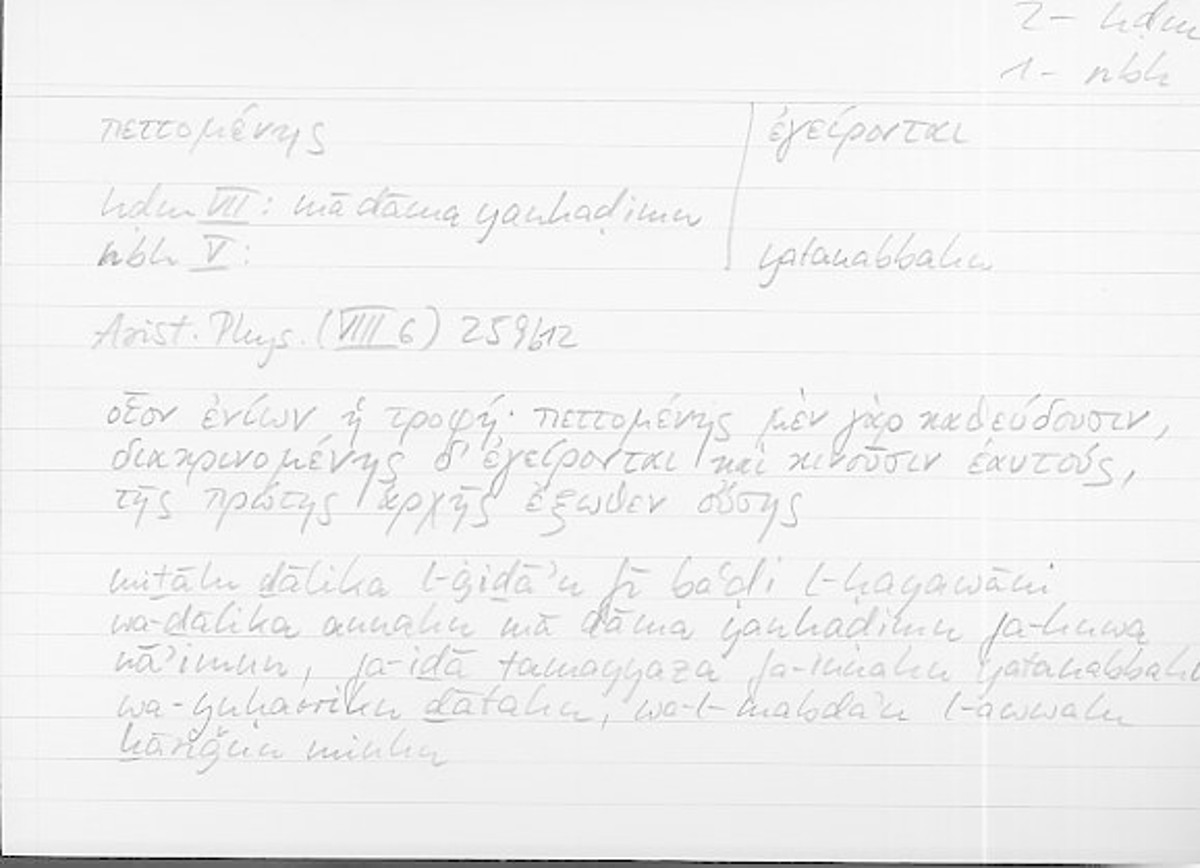 2- hḍm
1- nbh
πεττομένης | ἐγείρονται
hḍm VII: mā dāma yanhaḍimu
nbh V: yatanabbahu
Arist. Phys. (VIII 6) 259b12
οἷον ἐνίων ἡ τροφή· πεττομένης μὲν γὰρ καθεύδουσιν,
διακρινομένης δ' ἐγείρονται καὶ κινοῦσιν ἑαυτούς,
τῆς πρώτης ἀρχῆς ἔξωθεν οὔσης
miṯālu ḏālika l-ġiḏā'u fī ba'ḍi l-ḥayawāni
wa-ḏālika annahu mā dāma yanhaḍimu fa-huwa
nā'imun, fa-iḏā tamayyaza fa-innahu yatanabbahu
wa-yuḥarriku ḏātahu, wa-l-mabda'u l-awwalu
ḫāriǧun minhu